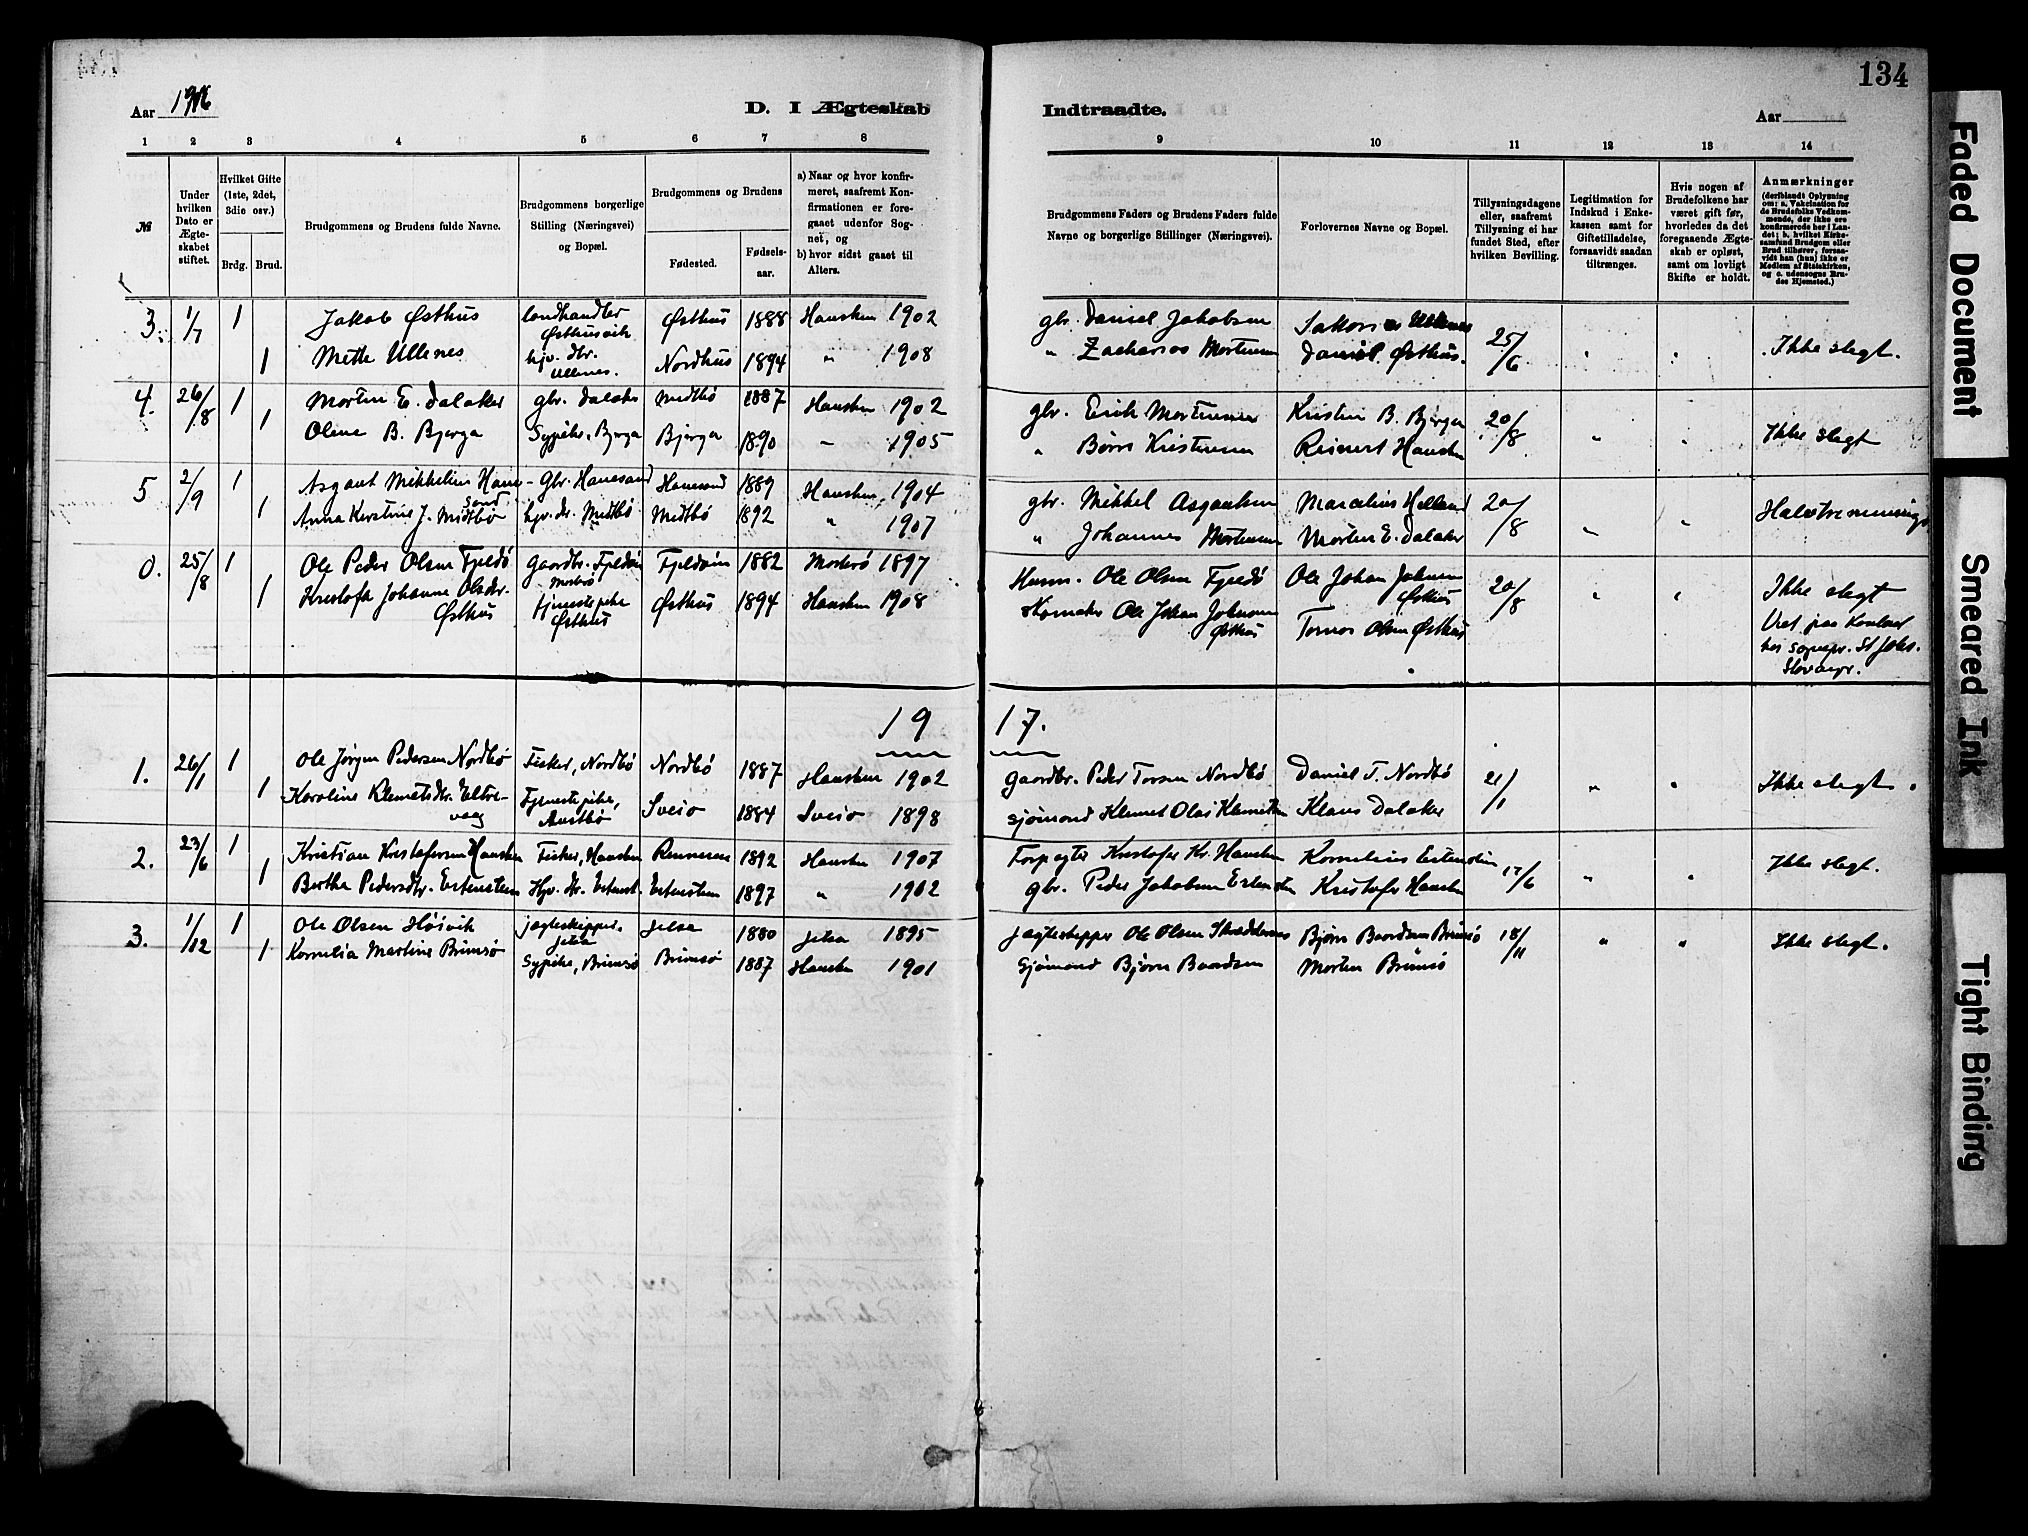 134
Aar 1916
D. I Ægteskab Indtraadte.
Aar
1 2 3 4 5 6 7 8 9 10 11 12 13 14
№
Under hvilken Dato er Ægteskabet stiftet.
Hvilket Gifte (1ste, 2det, 3die osv.)
Brdg. Brud.
Brudgommens og Brudens fulde Navne.
Brudgommens borgerlige Stilling (Næringsvei) og Bopæl.
Brudgommens og Brudens
Fødested. Fødselsaar.
a) Naar og hvor konfirmeret, saafremt Konfirmationen er foregaaet udenfor Sognet, og
b) hvor sidst gaaet til Alters.
Brudgommens Faders og Brudens Faders fulde Navne og borgerlige Stillinger (Næringsvei).
Forlovernes Navne og Bopæl.
Tillysningsdagene eller, saafremt Tillysning ei har fundet Sted, efter hvilken Bevilling.
Legitimation for Indskud i Enkekassen samt for Giftetilladelse, forsaavidt saadan tiltrænges.
Hvis nogen af Brudefolkene har været gift før, hvorledes da det foregaaende Ægteskab er opløst, samt om lovligt Skifte er holdt.
Anmærkninger (deriblandt Oplysning om: a. Vakcination for de Brudefolks Vedkommende, der ikke ere konfirmerede her i Landet; b. hvilket Kirkesamfund Brudgom eller Brud tilhører, forsaavidt han (hun) ikke er Medlem af Statskirken, og c. udensogns Brudes Hjemsted.)
3. 1/7 1 Jakob Østhus landhandler Østhusvik Østhus 1888 Hausken 1902 gbr. Daniel Jakobsen Sakarias Ullenes 25/6 " " Ikke slegt.
1 Mette Ullenes hjv. dtr. Ullenes. Nordhus 1894 " 1908 " Zacharias Mortensen Daniel Østhus.
4. 26/8 1 Morten E. Dalaker gbr. Dalaker Midtbö 1887 Hausken 1902 gbr. Erik Mortensen Kristen B. Bjerga 20/8 " " Ikke slegt
1 Oline B. Bjerga Sypike, Bjerga Bjerga 1890 " 1905 " Børre Kristensen Reinert Hausken
5 2/9 1 Asgaut Mikkelsen Hanesand Gbr. Hanesand Hanesand 1889 Hausken 1904 gbr. Mikkel Asgautsen Marselius Helland 20/8 " "
1 Anna Kerstine J. Midtbö hjv. dr. Midtbö Midtbö 1892 " 1907 " Johannes Mortensen Morten E. Dalaker
0. 25/8 1 Ole Peder Olsen Fjeldö Gaardbr. Fjeldöen Mosterö Fjeldöen 1882 Mosterö 1897 Husm. Ole Olsen Fjeldö Ole Johan Johnsen Østhus 20/8 " " Ikke slegt
1 Kristofa Johanne Olsdtr. Østhus tjenestepike Østhus Østhus 1894 Hausken 1908 Skomaker Ole Johan Johnsen Østhus Tomas Olsen Østhus
Viet paa Kontoret hos sognepr.
1917.
1. 26/1 1 Ole Jörgen Pedersen Nordbö Fisker, Nordbö Nordbö 1887 Hausken 1902 Gaardbr. Peder Torsen Nordbö Daniel T. Nordbö 21/1 " " Ikke slegt.
1 Karoline Klemetsdtr. Eltrevaag Tjenestepike, Austbö Sveio 1884 Sveio 1898 Sjömand Klemet Olai Klemetsen Klaus Dalaker
2. 23/6 1 Kristian Kristofersen Hausken Fisker, Hausken Rennesö 1892 Hausken 1907 Forpagter Kristofer Kr. Hausken Kornelius Eertenstein 17/6 " " Ikke slegt.
1 Bertha Pedersdtr. Ertenstein Hjv. dr. Ertenst. Ertenstein 1897 " 1902 gbr. Peder Jakobsen Ertenstein Kristofer Hausken
3. 1/12 1 Ole Olsen Høivik jagteskipper, Jelsa Jelsa 1880 Jelsa 1895 Jagteskipper Ole Olsen Bjørn Baardsen Brimsö 18/11 " " Ikke slegt.
1 Kornelia Martine Brimsö Sypike, Brimsö Brimsö 1887 Hausken 1901 Sjömand Bjørn Baardsen Morten Brimsö
Faded Document
Smeared Ink
Tight Binding